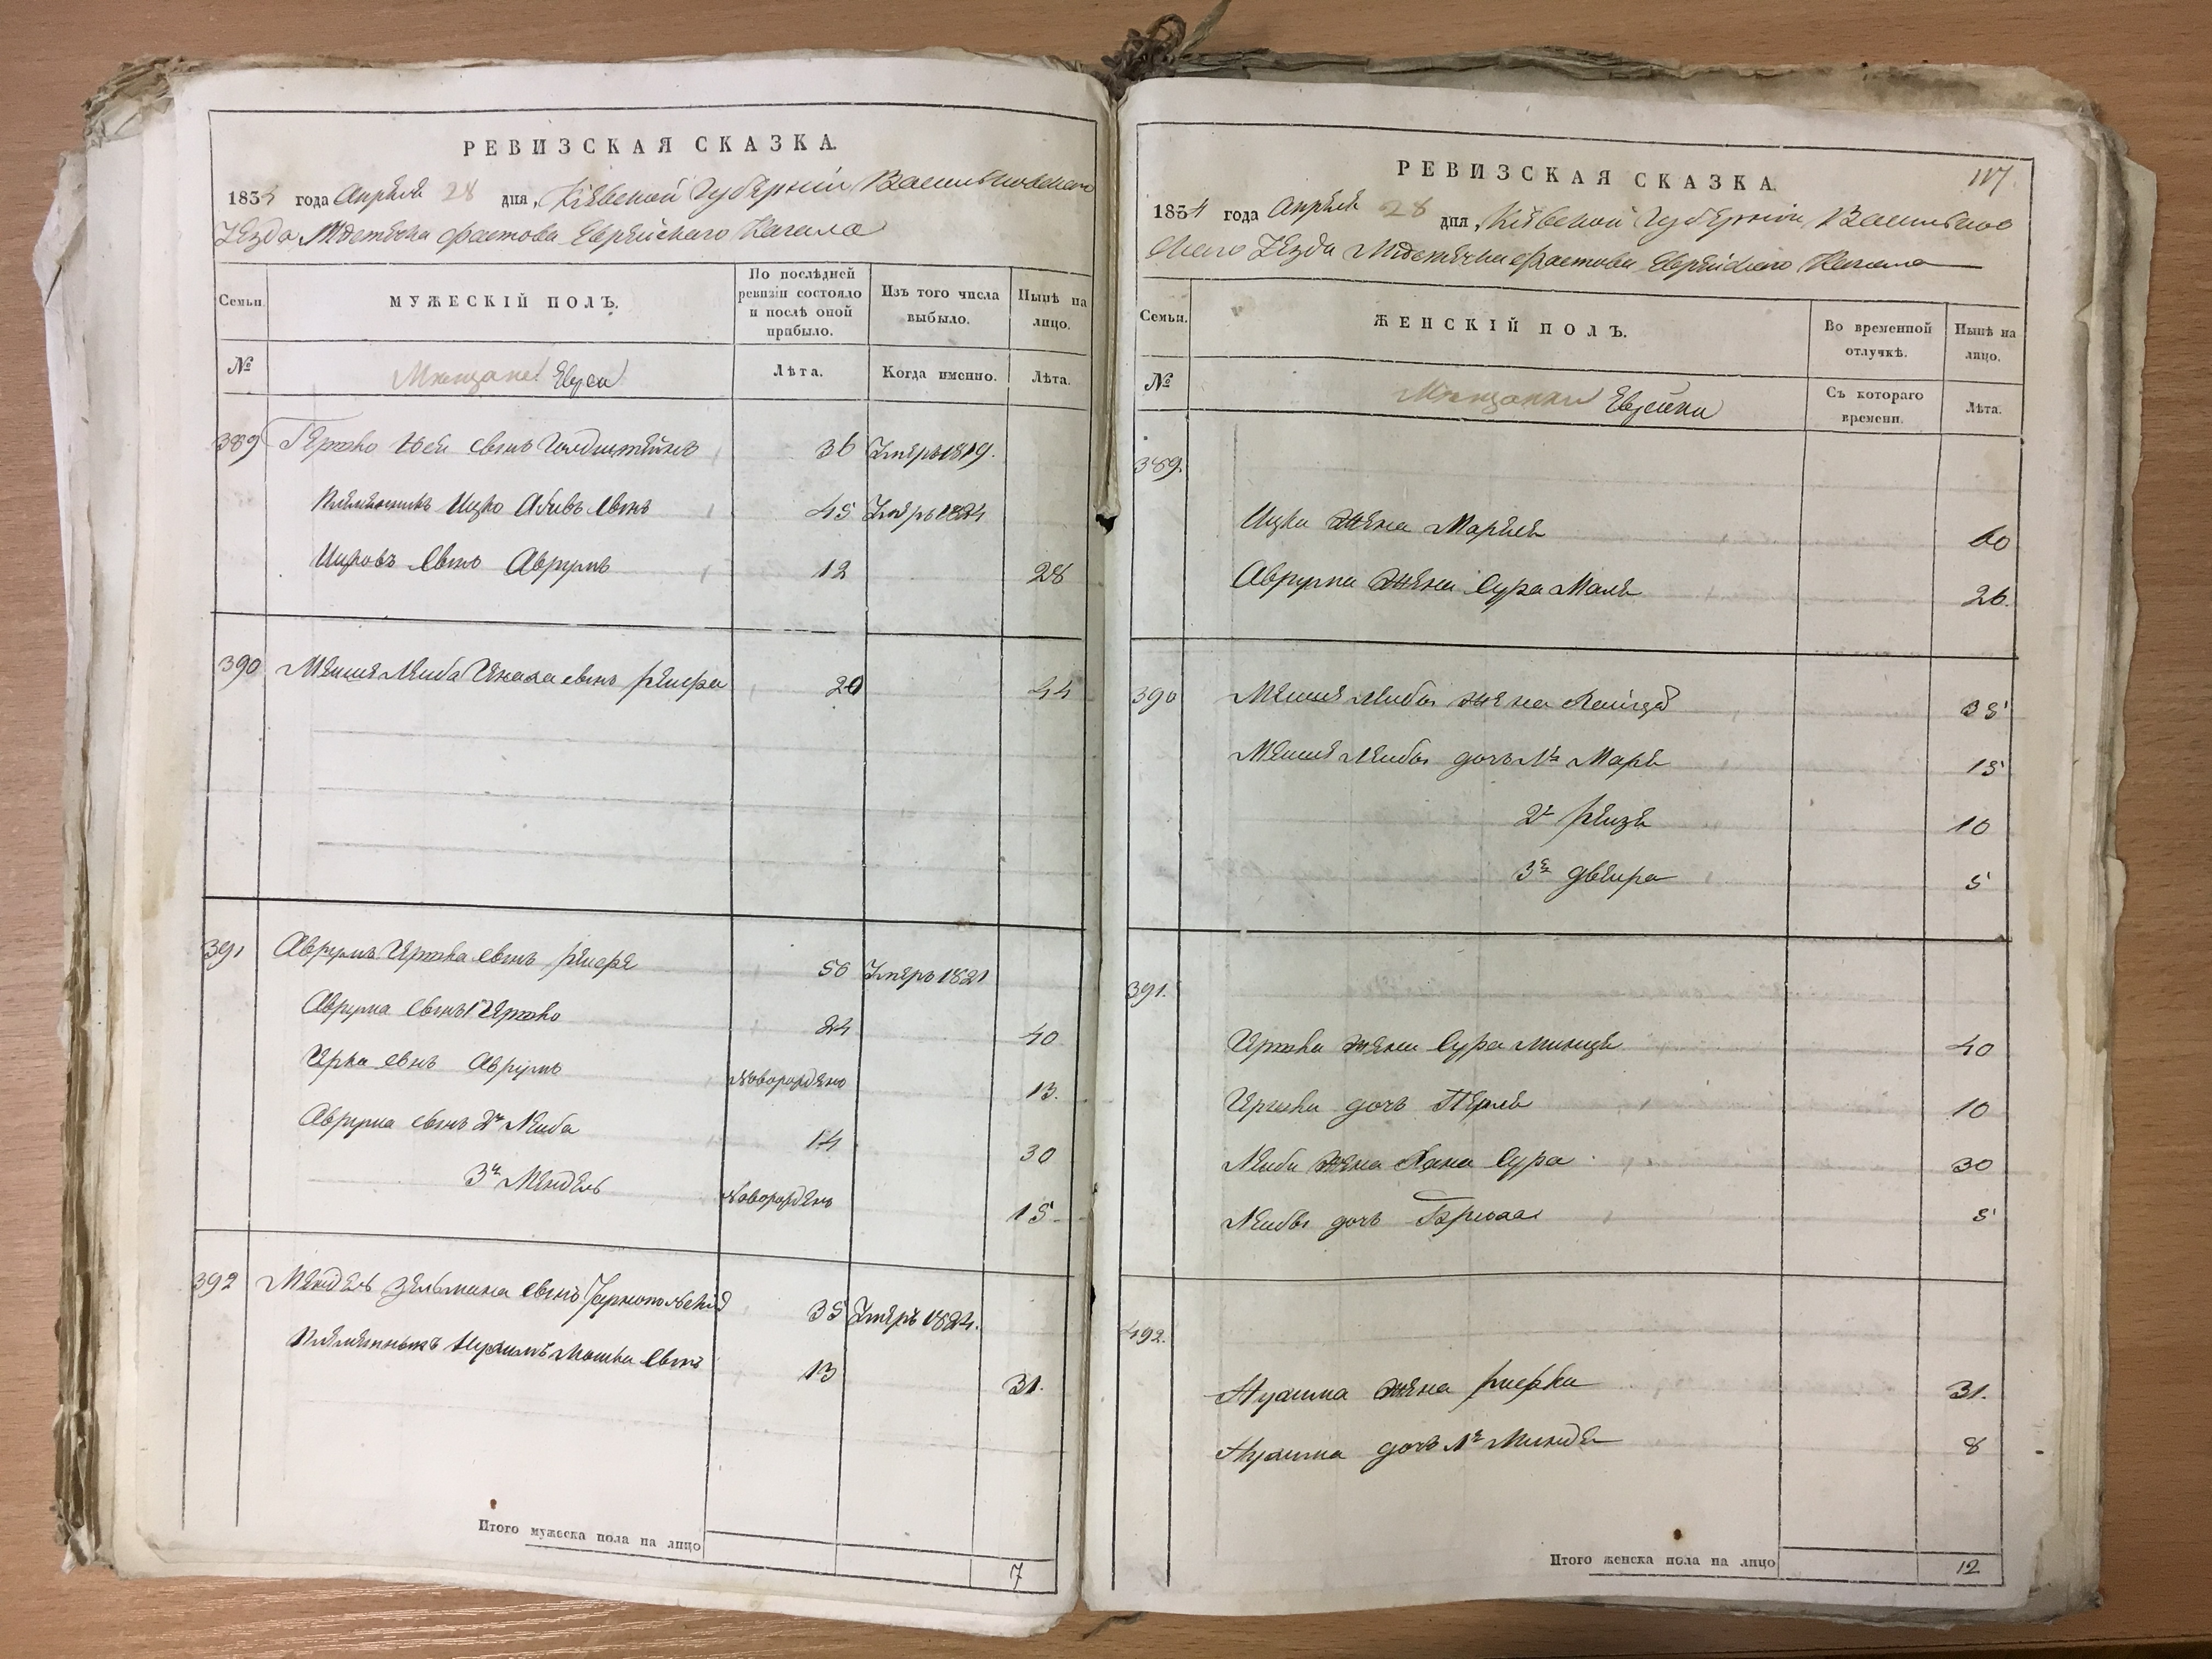 РЕВИЗСКАЯ СКАЗКА.
1834 года Апреля 28 дня, Кіевской Губерніи Васильковскаго
Уезда Местечка Фастова Еврейскаго Кагала
Семьи.
МУЖЕСКІЙ ПОЛЪ.
По послѣдней ревизіи состояло и послѣ оной прибыло.
Изъ того числа выбыло.
Нынѣ на лицо.
№
Мещане Евреи
Лѣта.
Когда именно.
Лѣта.
389 Гершко сынъ Голдштейнъ 36 Умеръ 1819.
Племянникъ Ицко сынъ 45 Умеръ 1824
Ицковъ сынъ Аврумъ 12 28
390 Лейба сынъ 20 44
391 Аврумъ Гершка сынъ 56 Умеръ 1821
Аврума сынъ 1й Гершко 24 40
сынъ Аврумъ Новорожденъ 13.
Аврума сынъ 2й Лейба 14 30
3й Мендель Новорожденъ 15
392 Мендель Зельмана сынъ Тарнопольскій 35 Умеръ 1824.
Племянникъ Мошка сынъ 13 31.
Итого мужеска пола на лицо 7
РЕВИЗСКАЯ СКАЗКА. 117.
1834 года Апреля 28 дня, Кіевской Губерніи Васильков
скаго Уезда Местечка Фастова Еврейскаго Кагала
Семьи.
ЖЕНСКІЙ ПОЛЪ.
Во временной отлучкѣ.
Нынѣ на лицо.
№
Мещанки Еврейки
Съ котораго времени.
Лѣта.
389.
Ицка жена Марьея 60
Аврума жена Сура Маля 26.
390 Лейбы жена 35
Лейбы дочь 1я Маря 15
2я Рейзя 10
3я Двейра 5
391.
Гершка жена Сура 40
Гершка дочь Перля 10
Лейбы жена Хана Сура 30
Лейбы дочь 5
492.
жена Рифка 31.
дочь 1я Миндя 8
Итого женска пола на лицо 12